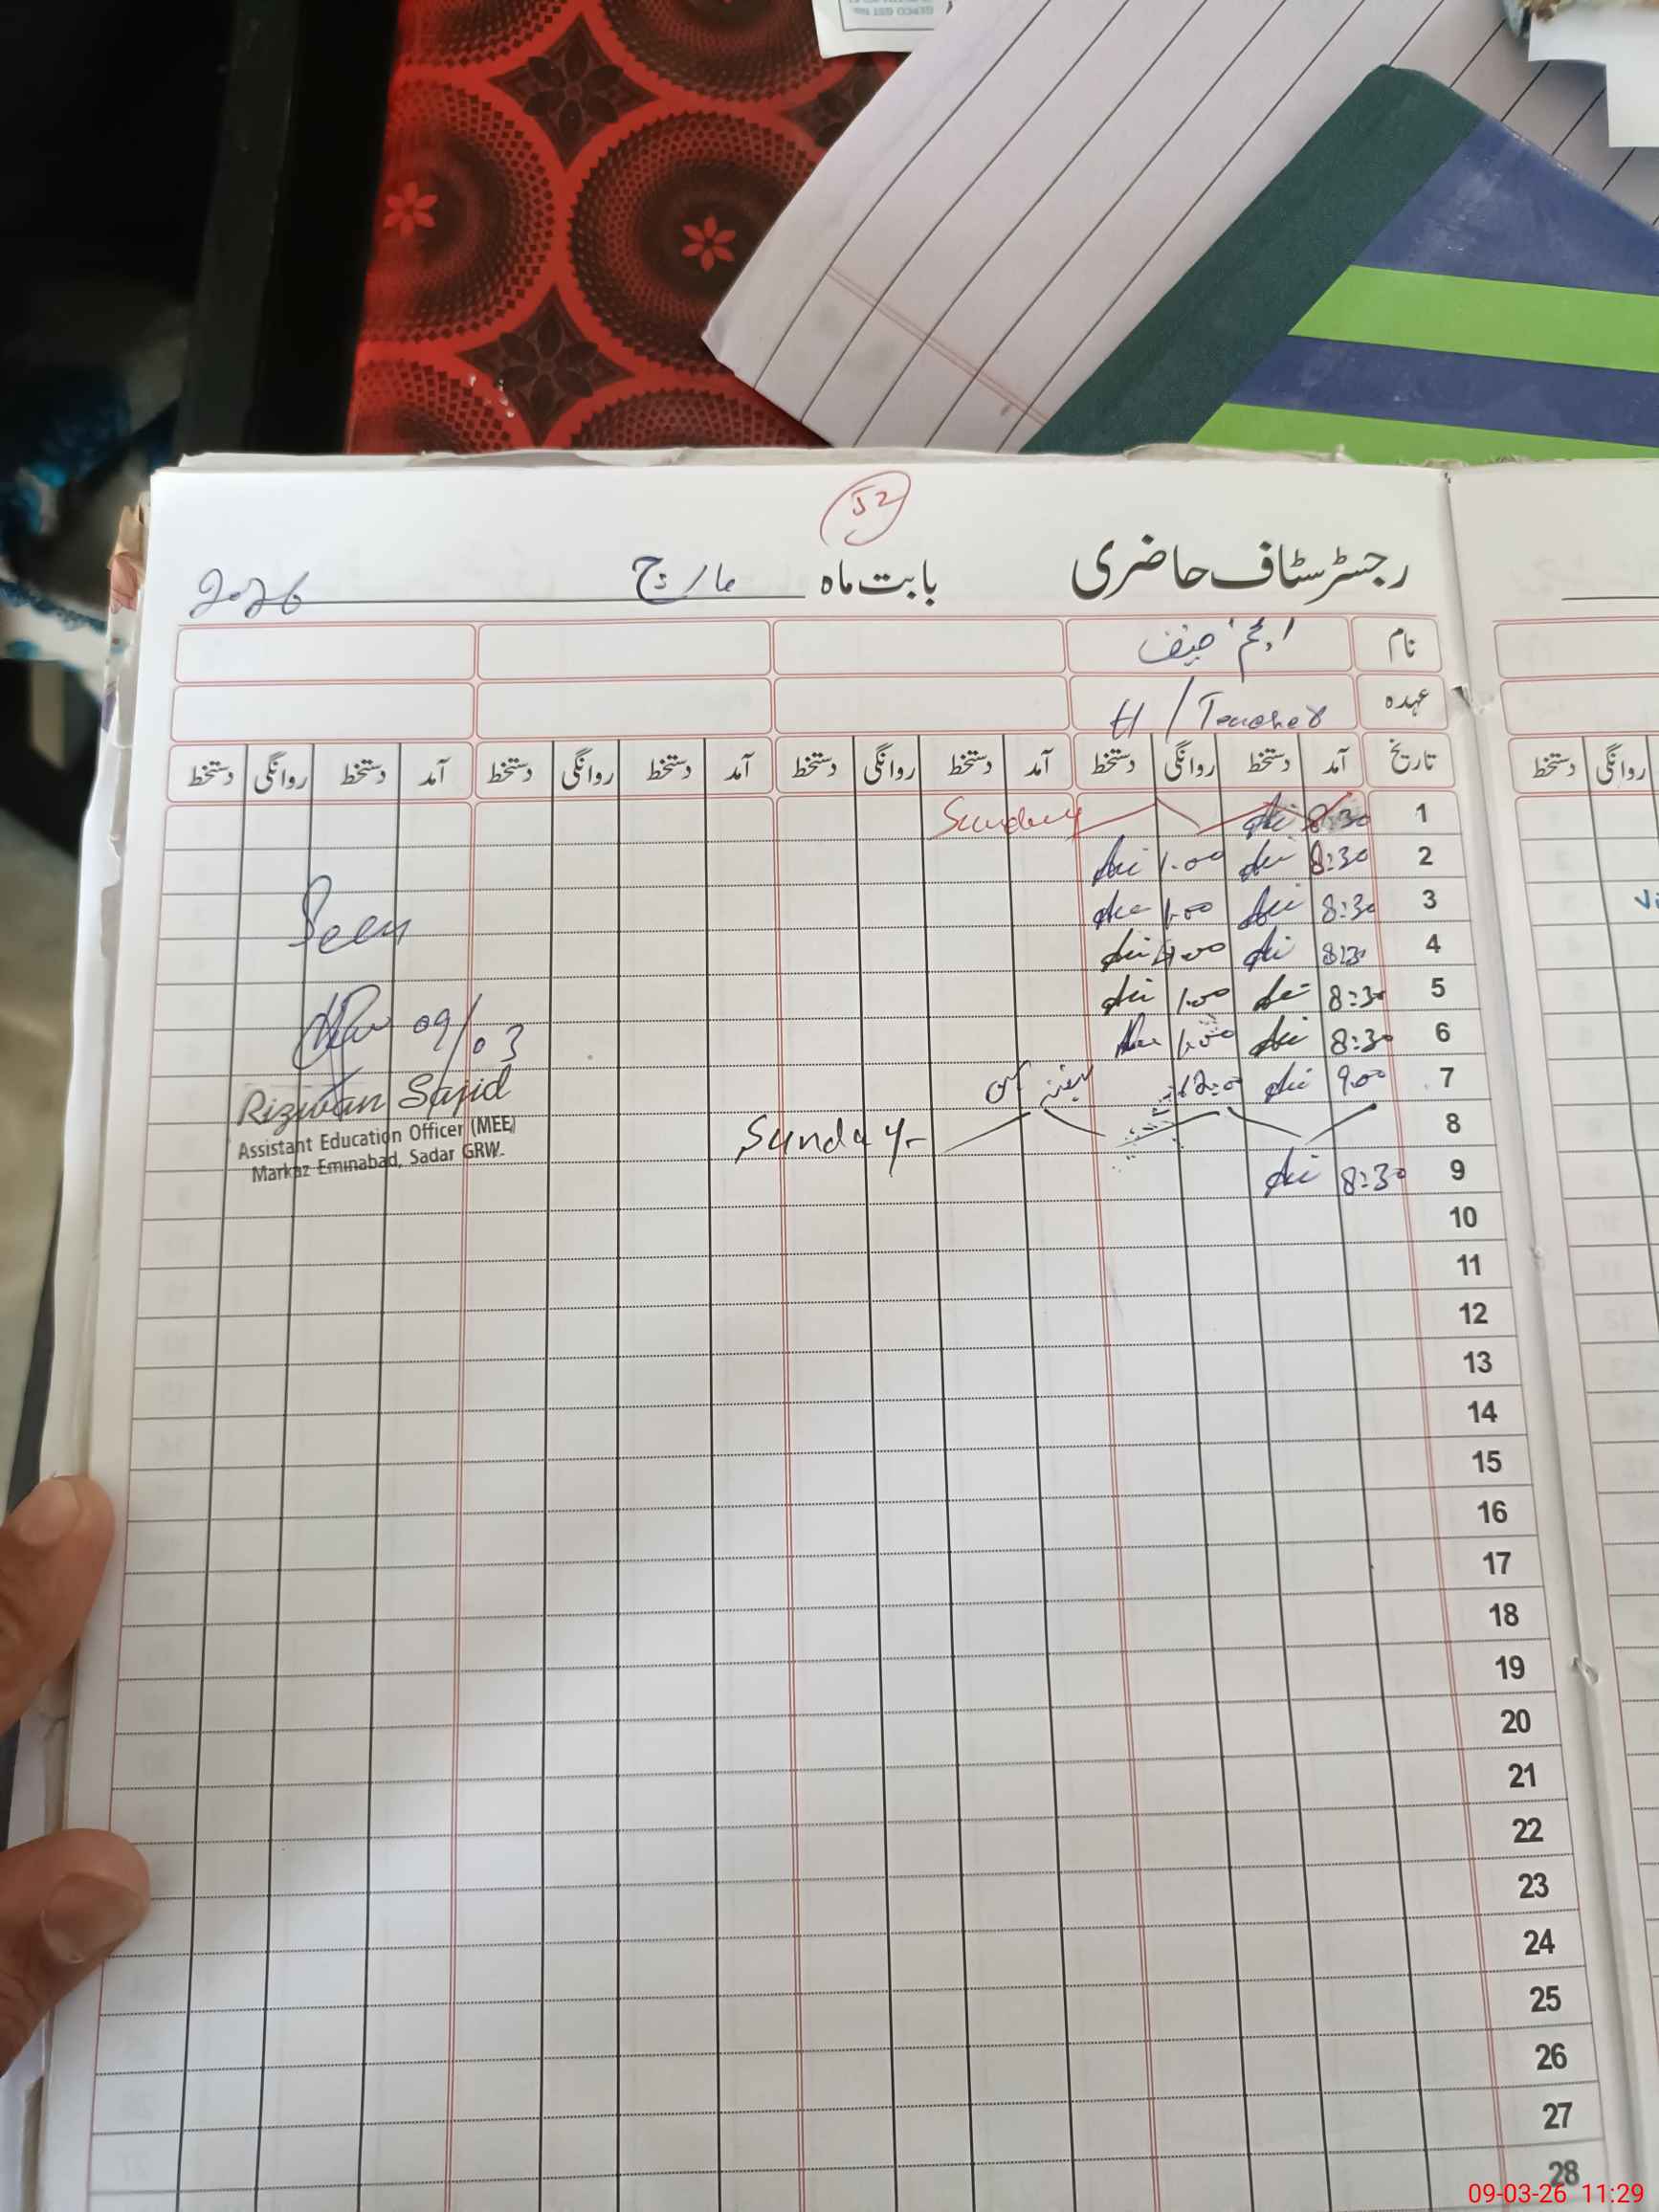 52
رجسٹر سٹاف حاضری بابت ماہ مارچ 2026
نام انجم حنیف
عہدہ H/Teacher
تاریخ آمد دستخط روانگی دستخط آمد دستخط روانگی دستخط آمد دستخط روانگی دستخط آمد دستخط روانگی دستخط
روانگی دستخط
1 8:30 Sunday
2 8:30 1.00
3 8:30 1.00
4 8:30 1.00
5 8:30 1.00
6 8:30 1.00
7 9.00 12:00
8 Sunday
9 8:30
10
11
12
13
14
15
16
17
18
19
20
21
22
23
24
25
26
27
28
Seen
09/03
Rizwan Sajid
Assistant Education Officer (MEE)
Markaz Eminabad, Sadar GRW.
09-03-26 11:29